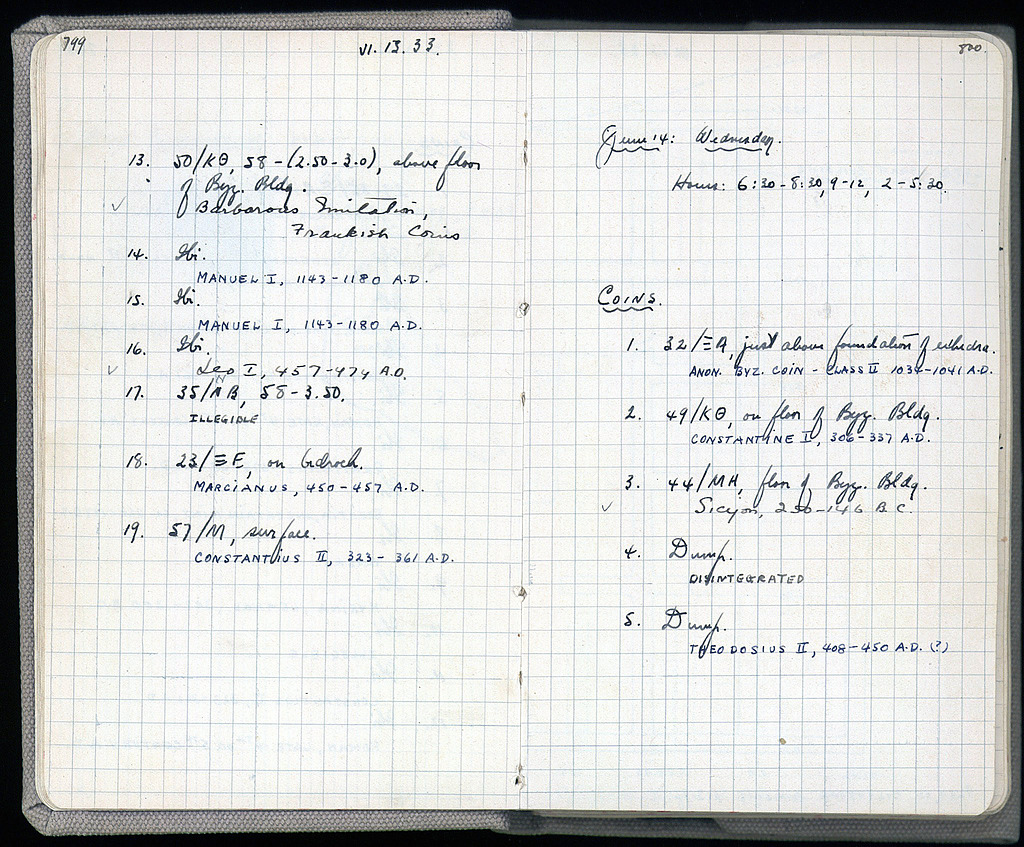 799
VI. 13. 33.
13. 50/ΚΘ, 58-(2.50-3.0), above floor
of Byz. Bldg.
✓ Barbarous Imitation,
Frankish Coins
14. Ibi.
MANUEL I, 1143-1180 A.D.
15. Ibi.
MANUEL I, 1143-1180 A.D.
16. Ibi.
✓ Leo I, 457-474 A.D.
17. 35/ΛΒ, 58-3.50.
ILLEGIBLE
18. 23/ΞΕ, on bedrock.
MARCIANUS, 450-457 A.D.
19. 57/Μ, surface.
CONSTANTIUS II, 323-361 A.D.
800.
June 14: Wednesday.
Hours: 6:30-8:30, 9-12, 2-5:30.
COINS.
1. 32/ΞΑ, just above foundation of exhedra.
ANON. BYZ. COIN - CLASS II 1034-1041 A.D.
2. 49/ΚΘ, on floor of Byz. Bldg.
CONSTANTINE I, 306-337 A.D.
3. 44/ΜΗ, floor of Byz. Bldg.
✓ Sicyon, 250-146 B.C.
4. Dump.
DISINTEGRATED
5. Dump.
THEODOSIUS II, 408-450 A.D. (?)